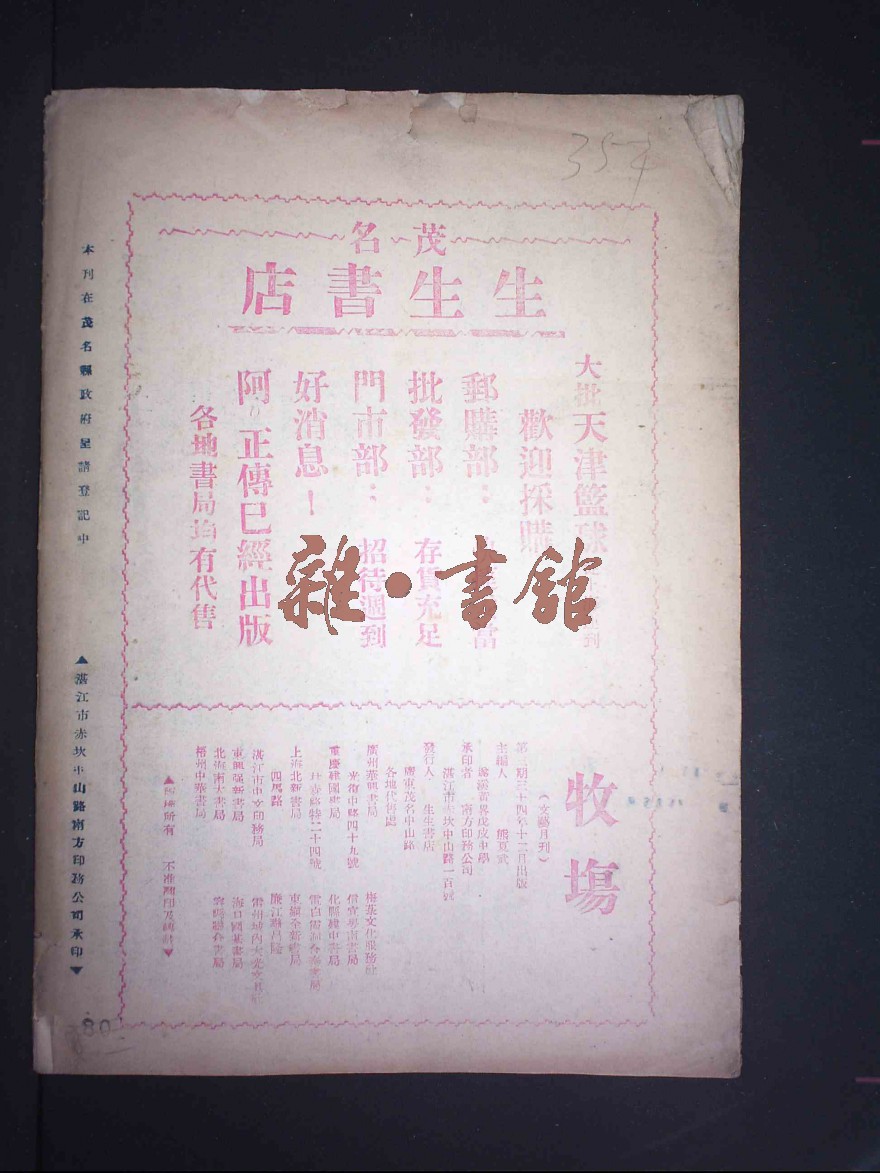 354
茂名
生生書店
大批天津籃球
歡迎採購
郵購部：
批發部：存貨充足
門市部：招待週到
好消息！
阿Q正傳已經出版
各地書局均有代售
雜·書館
牧塲
（文藝月刊）
第三期三十四年十二月出版
主編人 熊夏武
承印者 南方印務公司
湛江市赤坎中山路一百號
發行人 生生書店
廣東茂名中山路
各地代售處
廣州華興書局
光復中路四十九號
重慶建國書局
上海北新書局
四馬路
湛江市中文印務局
東興强新書局
北海南大書局
梧州中華書局
梅菉文化服務社
信宜粵南書局
化縣建中書局
海口國基書局
▲版權所有 不准翻印及轉計▼
本刊在茂名縣政府呈請登記中
▲湛江市赤坎中山路南方印務公司承印▼
80